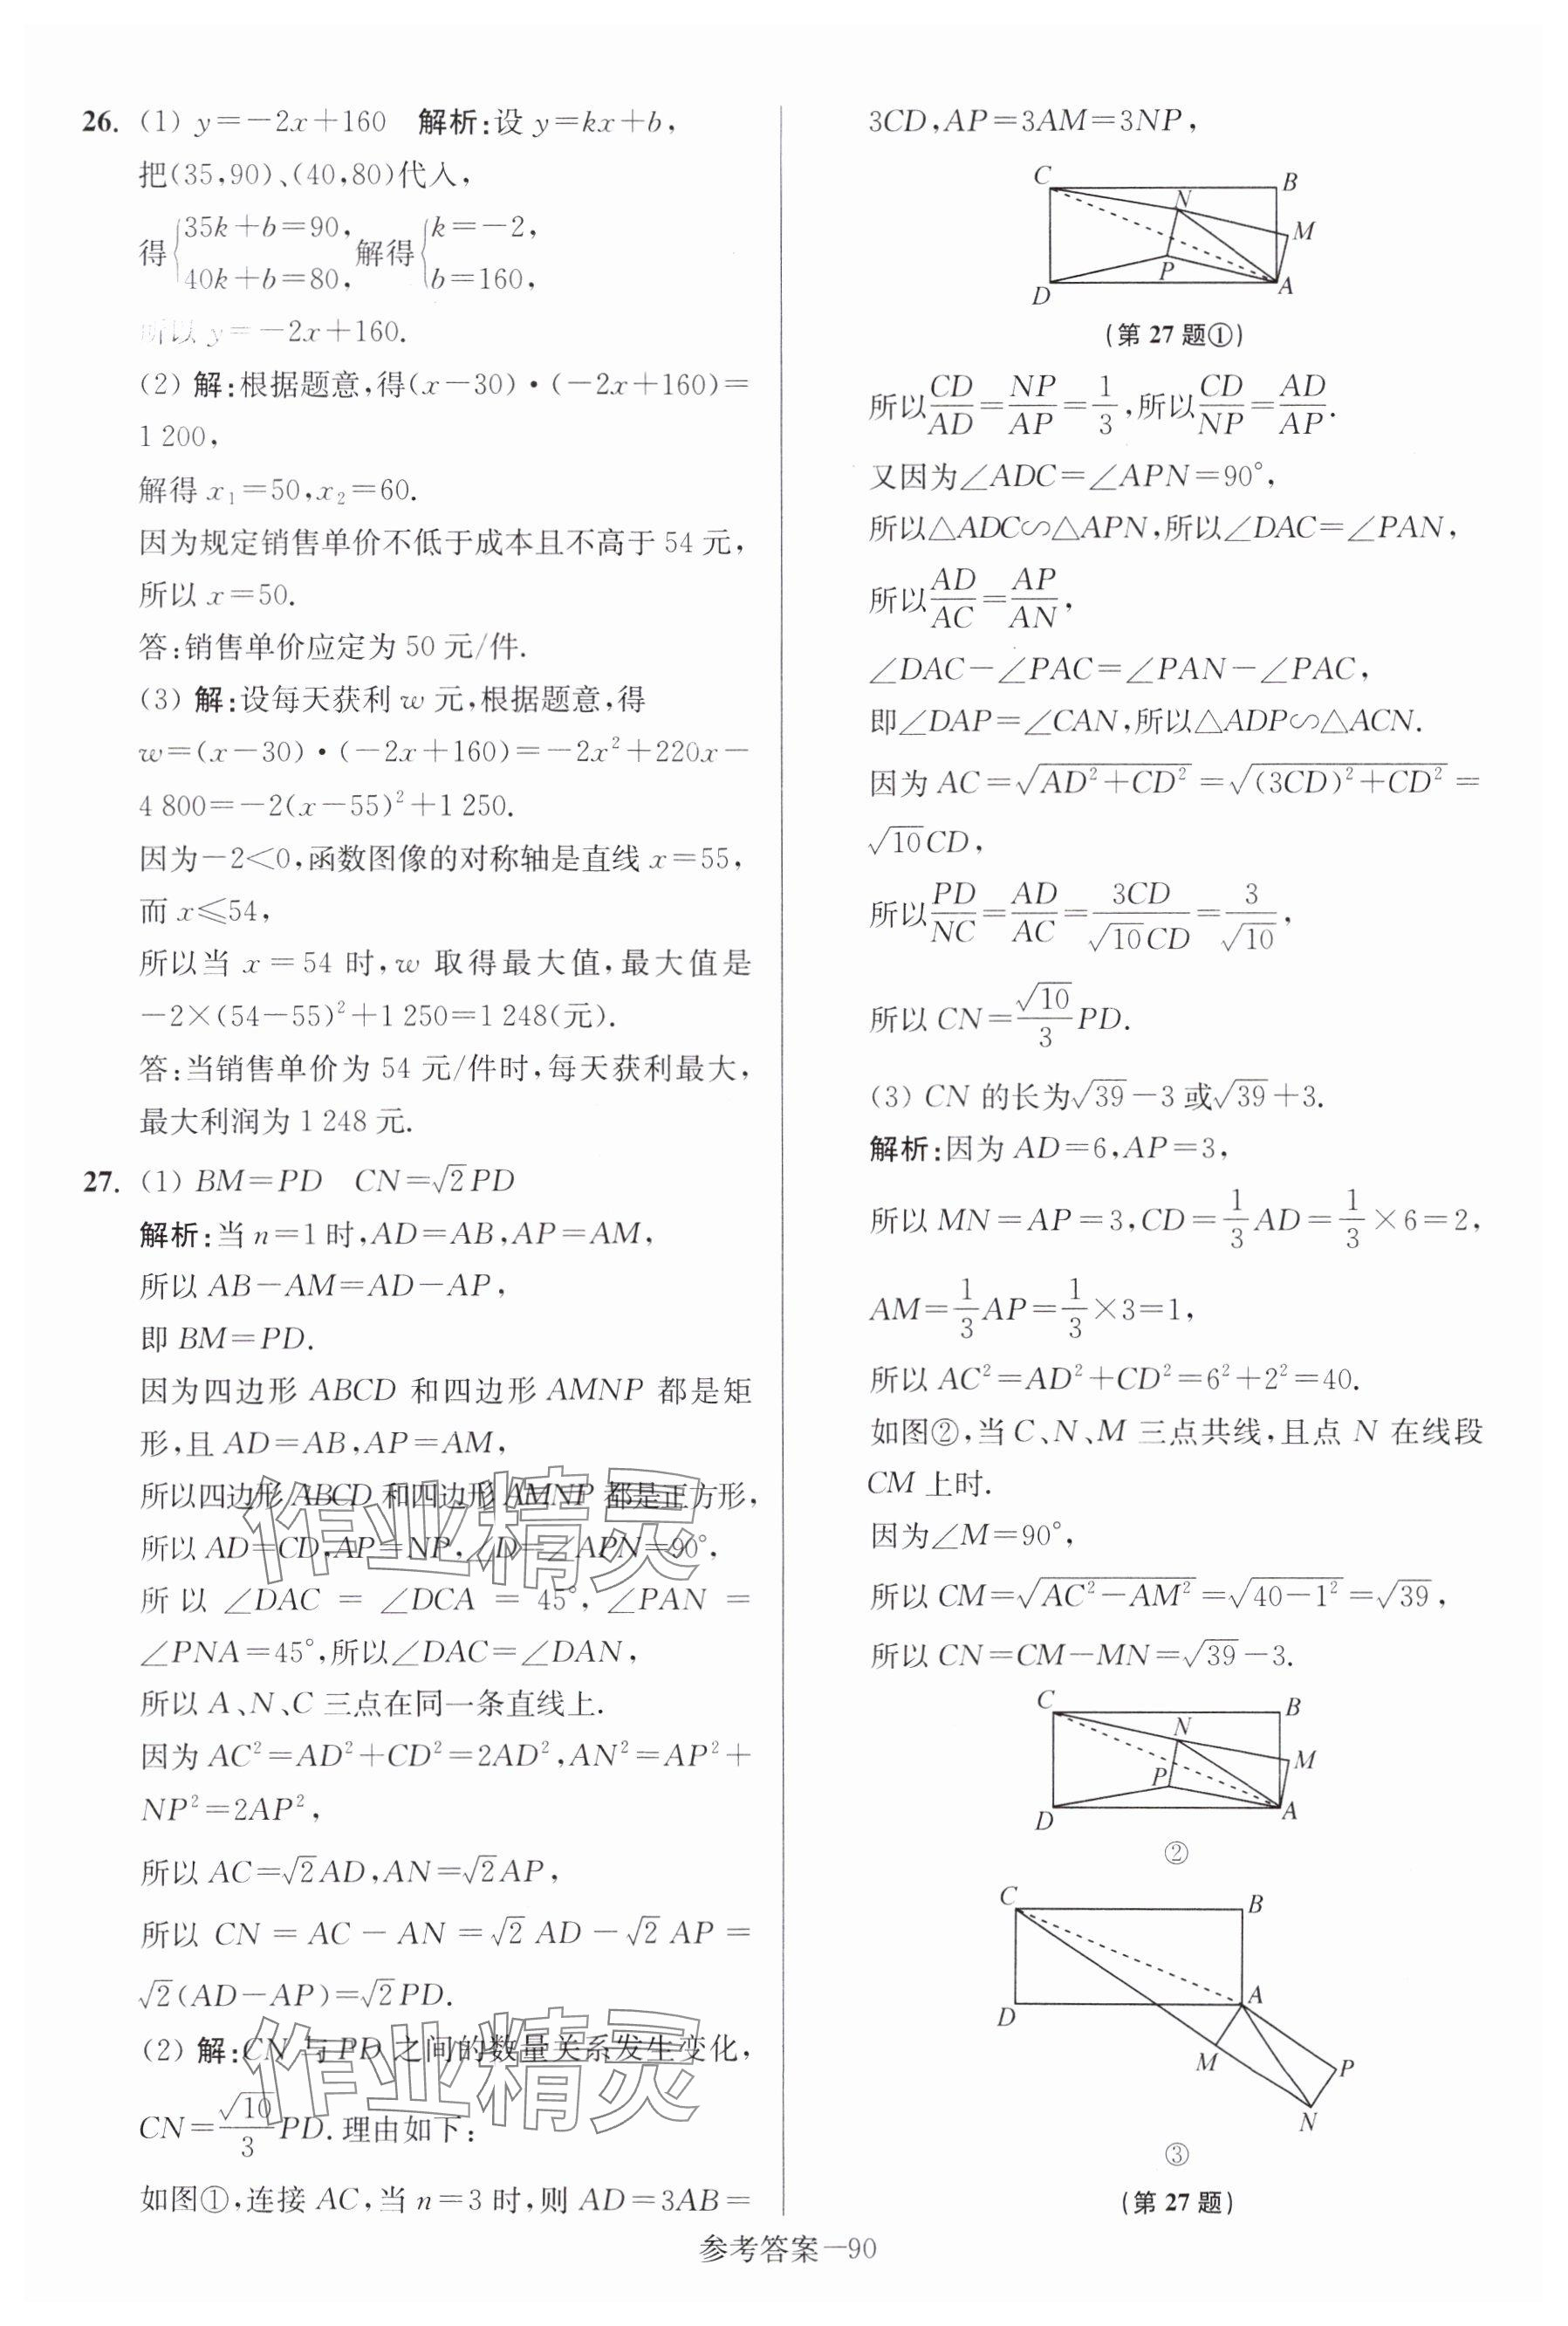 26. (1) y=-2x+160 解析:设 y=kx+b,
把(35,90)、(40,80)代入,
得{35k+b=90, 40k+b=80, 解得{k=-2, b=160,
所以 y=-2x+160.
(2) 解:根据题意,得(x-30)·(-2x+160)=
1 200,
解得 x₁=50,x₂=60.
因为规定销售单价不低于成本且不高于 54 元,
所以 x=50.
答:销售单价应定为 50 元/件.
(3) 解:设每天获利 w 元,根据题意,得
w=(x-30)·(-2x+160)=-2x²+220x-
4 800=-2(x-55)²+1 250.
因为-2<0,函数图像的对称轴是直线 x=55,
而 x≤54,
所以当 x=54 时,w 取得最大值,最大值是
-2×(54-55)²+1 250=1 248(元).
答:当销售单价为 54 元/件时,每天获利最大,
最大利润为 1 248 元.
27. (1) BM=PD CN=√2PD
解析:当 n=1 时,AD=AB,AP=AM,
所以 AB-AM=AD-AP,
即 BM=PD.
因为四边形 ABCD 和四边形 AMNP 都是矩
形,且 AD=AB,AP=AM,
所以四边形 ABCD 和四边形 AMNP 都是正方形,
所以 AD=CD,AP=NP,∠D=∠APN=90°,
所以 ∠DAC = ∠DCA = 45°, ∠PAN =
∠PNA=45°,所以∠DAC=∠DAN,
所以 A、N、C 三点在同一条直线上.
因为 AC²=AD²+CD²=2AD²,AN²=AP²+
NP²=2AP²,
所以 AC=√2AD,AN=√2AP,
所以 CN = AC - AN = √2 AD - √2 AP =
√2(AD-AP)=√2PD.
(2) 解:CN 与 PD 之间的数量关系发生变化,
CN=√10/3 PD.理由如下:
如图①,连接 AC,当 n=3 时,则 AD=3AB=
3CD,AP=3AM=3NP,
C
B
N
M
P
D
A
(第 27 题①)
所以CD/AD=NP/AP=1/3,所以CD/NP=AD/AP.
又因为∠ADC=∠APN=90°,
所以△ADC∽△APN,所以∠DAC=∠PAN,
所以AD/AC=AP/AN,
∠DAC-∠PAC=∠PAN-∠PAC,
即∠DAP=∠CAN,所以△ADP∽△ACN.
因为 AC=√(AD²+CD²)=√((3CD)²+CD²)=
√10CD,
所以PD/NC=AD/AC=3CD/√10CD=3/√10,
所以 CN=√10/3 PD.
(3) CN 的长为√39-3 或√39+3.
解析:因为 AD=6,AP=3,
所以 MN=AP=3,CD=1/3AD=1/3×6=2,
AM=1/3AP=1/3×3=1,
所以 AC²=AD²+CD²=6²+2²=40.
如图②,当 C、N、M 三点共线,且点 N 在线段
CM 上时.
因为∠M=90°,
所以 CM=√(AC²-AM²)=√(40-1²)=√39,
所以 CN=CM-MN=√39-3.
C
B
N
M
P
D
A
②
C
B
A
D
M
P
N
③
(第 27 题)
参考答案—90
作业精灵
作业精灵